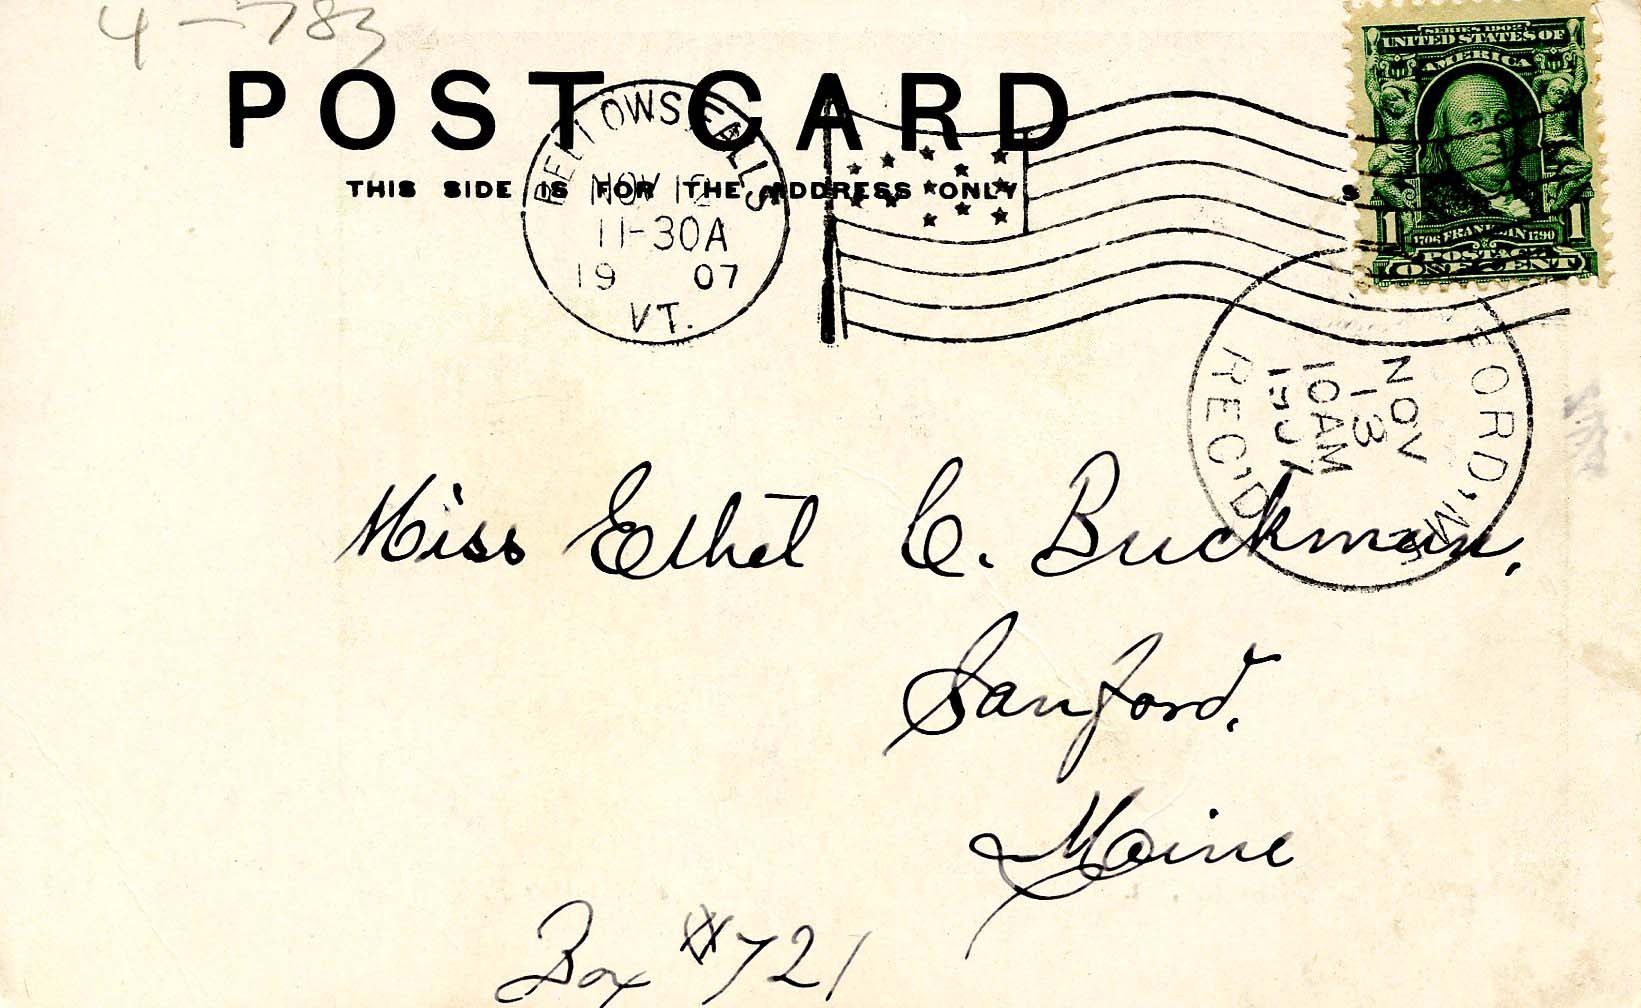 4-783
POST CARD
THIS SIDE IS FOR THE ADDRESS ONLY
BELLOWS FALLS
NOV 12
11-30A
19 07
VT.
SERIES 1902
UNITED STATES OF
AMERICA
1 1
1706 FRANKLIN 1790
POSTAGE
ONE CENT
FORD, ME.
NOV
13
10AM
REC'D
Miss Ethel C. Buckman.
Sanford.
Maine
Box #721